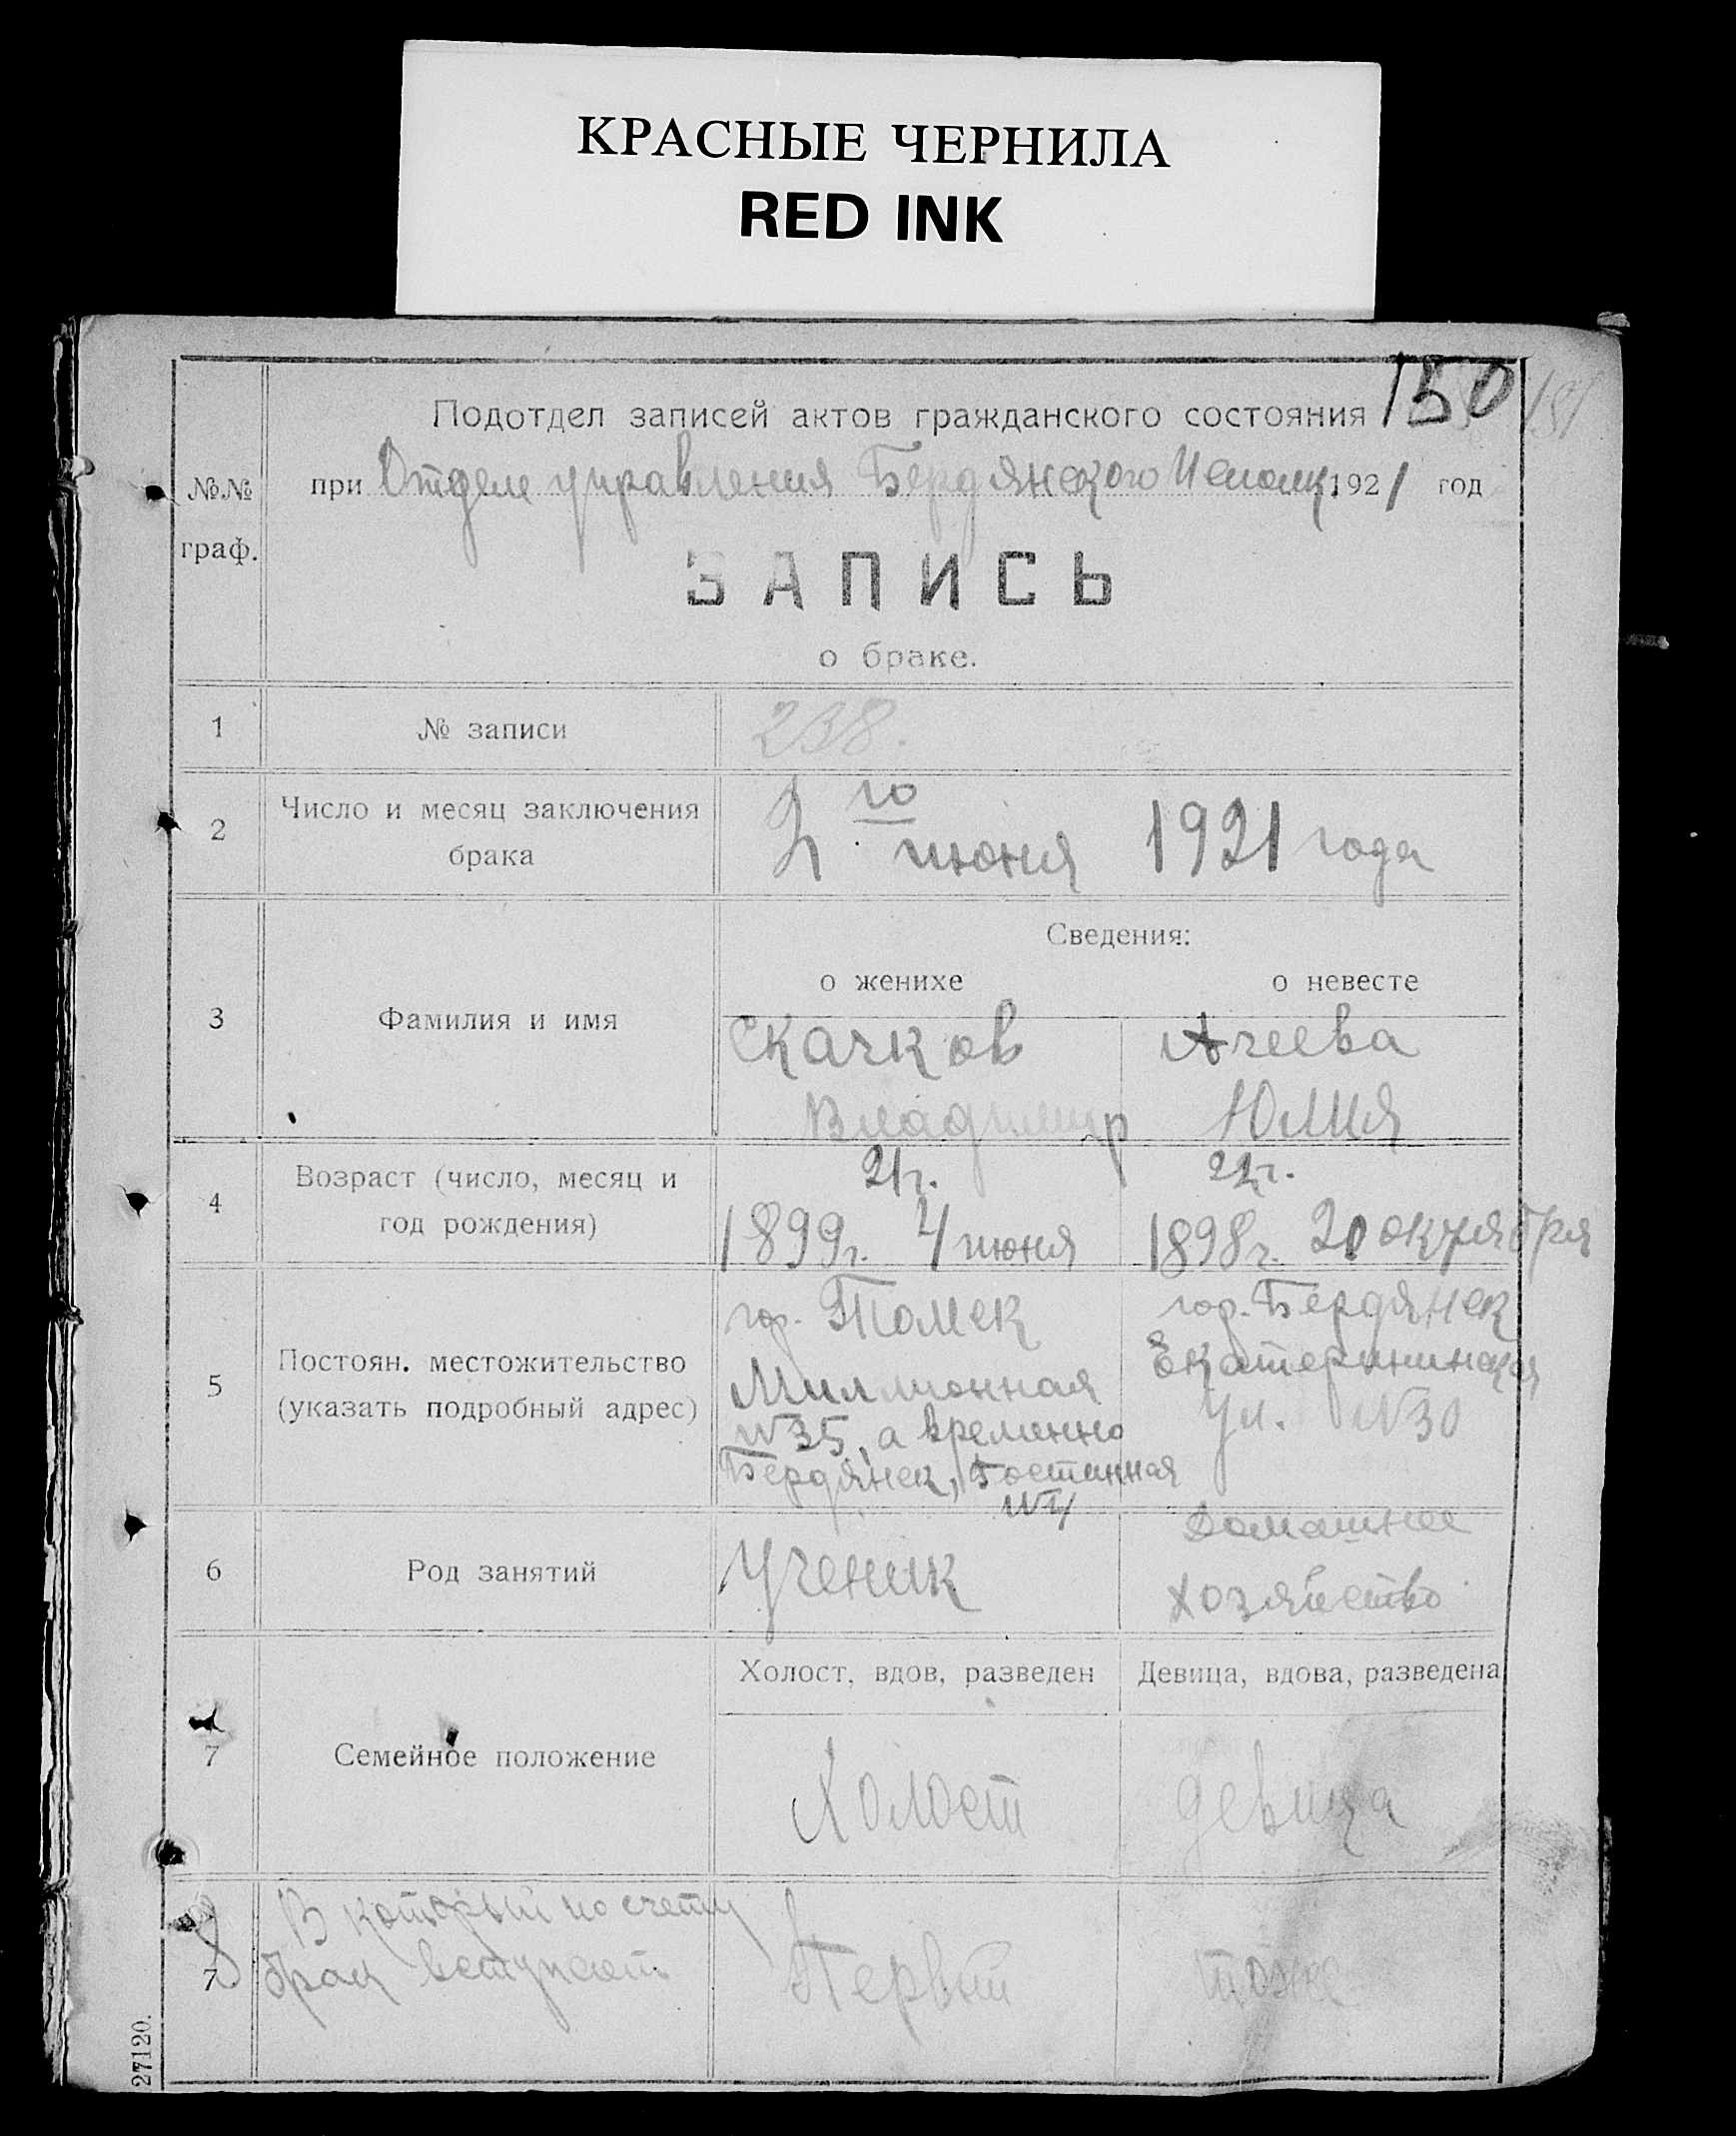 КРАСНЫЕ ЧЕРНИЛА
RED INK
150 181
Подотдел записей актов гражданского состояния
№№ граф.
при Отделе управления Бердянского Исполк. 1921 год
ЗАПИСЬ
о браке.
1 № записи 238.
2 Число и месяц заключения брака
2го июня 1921 года
Сведения:
о женихе о невесте
3 Фамилия и имя
Скачков Агеева
Владимир Юлия
4 Возраст (число, месяц и год рождения)
21г. 22г.
1899г. 4 июня 1898г. 20 октября
5 Постоян. местожительство (указать подробный адрес)
гор. Томск гор. Бердянск
Миллионная Екатерининская
№35, а временно ул. №30
Бердянск, Гостинная
6 Род занятий
Ученик Домашнее
хозяйство
Холост, вдов, разведен Девица, вдова, разведена
7 Семейное положение
Холост девица
8 В который по счету
7 брак вступает Первый тоже
27120.